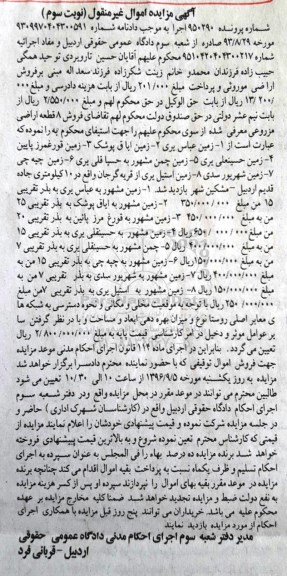 آگهی مزایده اموال غیرمنقول (نوبت سوم )
شماره پرونده ۹۵۰۲۹۰ اجرا به موجب دادنامه شماره ۹۳۰۹۹۷۰۴۰۴۳۰۰۵۹۱
مورخه ۹۳/۸/۲۹ صادره از شعبه سوم دادگاه عمومی حقوقی اردبیل و مفاد اجرائیه
شماره ۹۵۱۰۴۲۰۴۰۴۳۰۰۲۱۷ محکوم علیهم آقایان حسین تارویردی تو حید همگی
حبیب زاده فرزندان محمدو خانم زینت شکرزاده فرزند سعداله مبنی برفروش
ارا ضی موروثی و پرداخت مبلغ ۲۰۱/۰۰۰ ریال از بابت هزینه دادرسی و مبلغ ۰۰۰
/۱۳/۲۰۰ ریال از بابت حق الوکیل در حق محکوم لهم و مبلغ ۲/۵۵۰/۰۰۰ ریال از
بابت نیم عشر دولتی در حق صندوق دولت محکوم لهم تقاضای فروش ۸ قطعه اراضی
مزروعی معرفی شده از سوی محکوم علیهم را جهت استیفای محکوم به را نموده که
عبارت است از ۱- زمین عباس یری ۲- زمین ایا ق پوشک ۳- زمین قورغمرز پایین
۴- زمین حسینعلی یری ۵- زمین چمن مشهور به حسیا قلی یری ۶- زمین چپه چی
۷- زمین شهریور سدی ۸- زمین استیل یری از قریه گرجان واقع در ۱۰ کیلومتری جاده
قدیم اردبیل – مشکین شهر بازدید شد. ۱- زمین مشهور به عباس یری به بذر تقریبی
۱۵ من مبلغ ۳۵۰/۰۰۰/۰۰۰ ۲- زمین مشهور به ایاق پوشک به بذر تقریبی ۲۵
من به مبلغ ۴۵۰/۰۰۰/۰۰۰ ۳- زمین مشهور به قورغ مرز پائین به بذر تقریبی ۲۰
من مبلغ ۶۵۰/۰۰۰/۰۰۰ ریال ۴- زمین مشهور به حسینعلی یری به بذر تقریبی ۱۵
من به مبلغ ۴۰۰/۰۰۰/۰۰۰ ریال ۵- چمن مشهور به حسینقلی یری به بذر تقریبی ۷
من به مبلغ ۱۵۰/۰۰۰/۰۰۰ریال ۶- زمین مشهور به چپه چی به بذر تقریبی ۱۵ من به
مبلغ ۴۰۰/۰۰۰/۰۰۰ ریال ۷- زمین مشهور به شهریور سدی به بذر تقریبی ۷ من به
مبلغ ۱۵۰/۰۰۰/۰۰۰ ریال ۸- زمین مشهور به استیل یری به بذر تقریبی ۷من مبلغ
۲۵۰/۰۰۰/۰۰۰ ریال با توجه به موقعیت محلی و مکانی و نحوه دسترسی به شبکه ها
ی معابر اصلی روستا نوع و میزان بهره دهی ابعاد و مساحت و با در نظر گرفتن سا
یر عوامل موثر و دخیل در امر کارشناسی قیمت پایه به مبلغ ۲/۸۰۰/۰۰۰/۰۰۰ ریال
تعیین می گردد. بنابراین در اجرای ماده ۱۱۴ قانون اجرای احکام مدنی موعد مزایده
جهت فروش اموال توقیفی که با حضور نماینده محترم دادسرا برگزار خواهد شد
مزایده به روز یکشنبه مورخه ۱۳۹۶/۹/۵ از ساعت ۱۰ الی ۱۰/۳۰ تعیین می شود
طالبین محترم می توانند در موعد مقرر در محل مزایده واقع در دفتر شعبه سوم
اجرای احکام دادگاه حقوقی اردبیل واقع در (کارشناسان شهرک اداری ) حاضر و
در جلسه مزایده شرکت نموده و قیمت پیشنهادی خودشان را اعلام نمایند مزایده از
قیمتی که کارشناس محترم تعین نموده شروع و به بالاترین قیمت پیشنهادی فروخته
خواهد شد برنده مزایده ده درصد بهاء را فی المجلس به عنوان سپرده به اجرای
احکام تسلیم و ظرف یکماه نسبت به پرداخت بقیه اموال اقدام می کند چنانچه برنده
مزایده در موعد مقرر بقیه بهای اموال را نپردازند سپرده او پس از کسر هزینه مزایده
به نفع دولت ضبط و مزایده تجدید خواهد شد ضمنا کلیه مخارج مزایده بر عهده
محکوم علیه می باشد خریداران می توانند پنج روز قبل مزایده با همکاری اجرای
احکام از مورد مزایده بازدید نمایند
مدیر دفتر شعبه سوم اجرای احکام مدنی دادگاه عمومی حقوقی
اردبیل – قربانی فرد